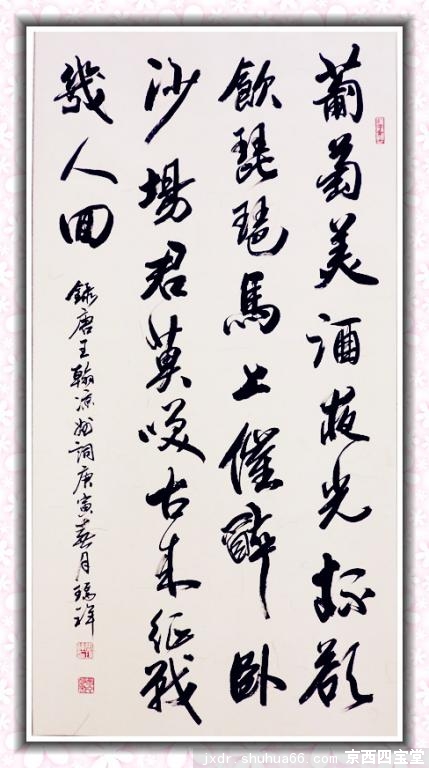 葡萄美酒夜光杯欲
飲琵琶馬上催醉臥
沙場君莫笑古來征戰
幾人回
錄唐王翰涼州詞庚寅春月瑞祥
jxdr.shuhua66.com 京西四宝堂